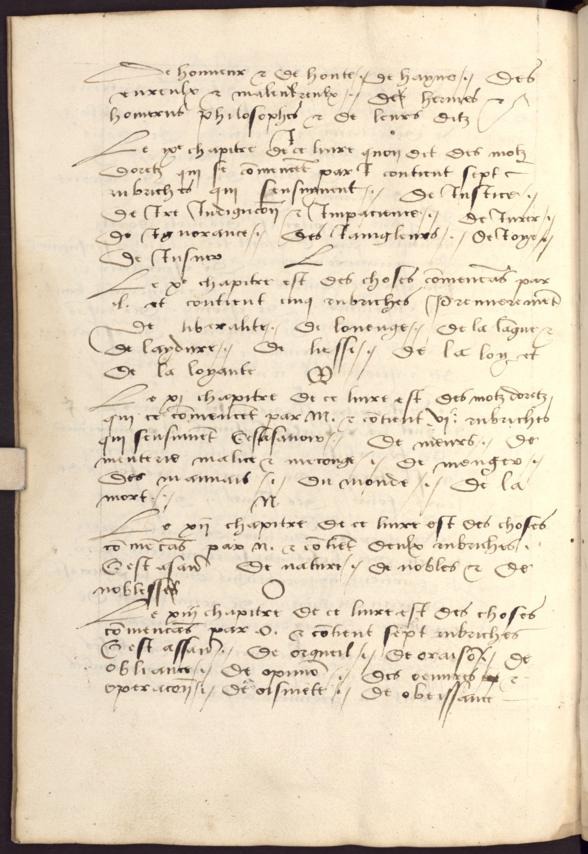 De honneur et de honte // de hayne // des
eureulx et maleureulx // de hermes et
homerus philosophes et de leurs ditz
I
Le ixe chapitre de ce livre quon dit des motz
dorez qui se comencet par I contient sept
rubriches qui sensuivent // De Justice //
de Ire Indignacion et Impacience // de Jurer //
de Ignorance // des Jaingleurs // de Joye //
de Jusner L
Le xe chapitre est des choses comencas par
.l. et contient cinq rubriches Premierement
de liberalite // de louenge // de la lague et
de laydure // de liesse // de la loy et
de la loyaute M
Le xi chapitre de ce livre est des motz dorez
qui ce comencet par M. et cotient vi. rubriches
qui sensuivent Cest asavoir // De meurs // de
menterie malice et meconge // de menger //
des mauvais // du monde // de la
mort // N
Le xii chapitre de ce livre est des choses
comecas par N. et cotiet deulx rubriches.
Cest asavr de nature // de nobles et de
noblesses O
Le xiii chapitre de ce livre est des choses
comencas par O. et cotient sept rubriches
Cest assavr // De orgueil // de oraison // de
obliance // de opinio // des oeuvres et
operacon // de oisivete // de obeissance